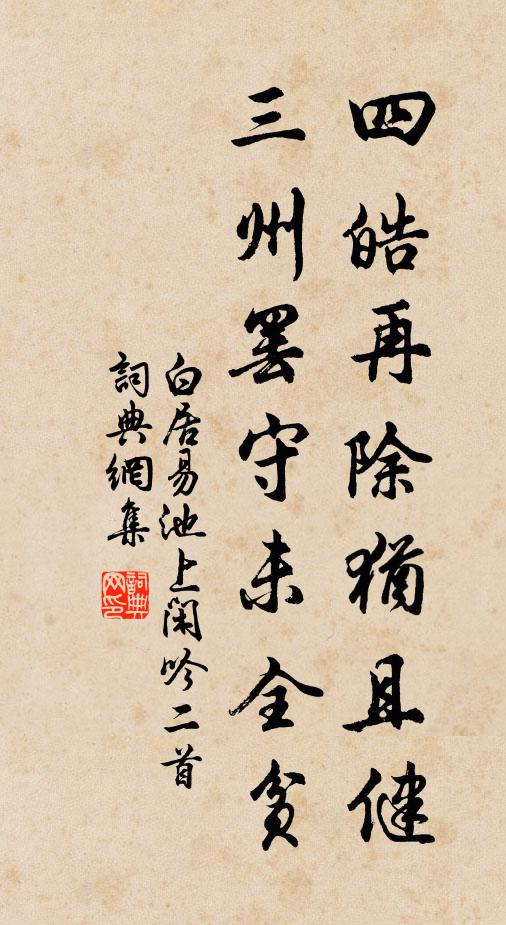 四皓再除猶且健
三州罷守未全貧
白居易池上閑吟二首
詞典網集
詞典網印